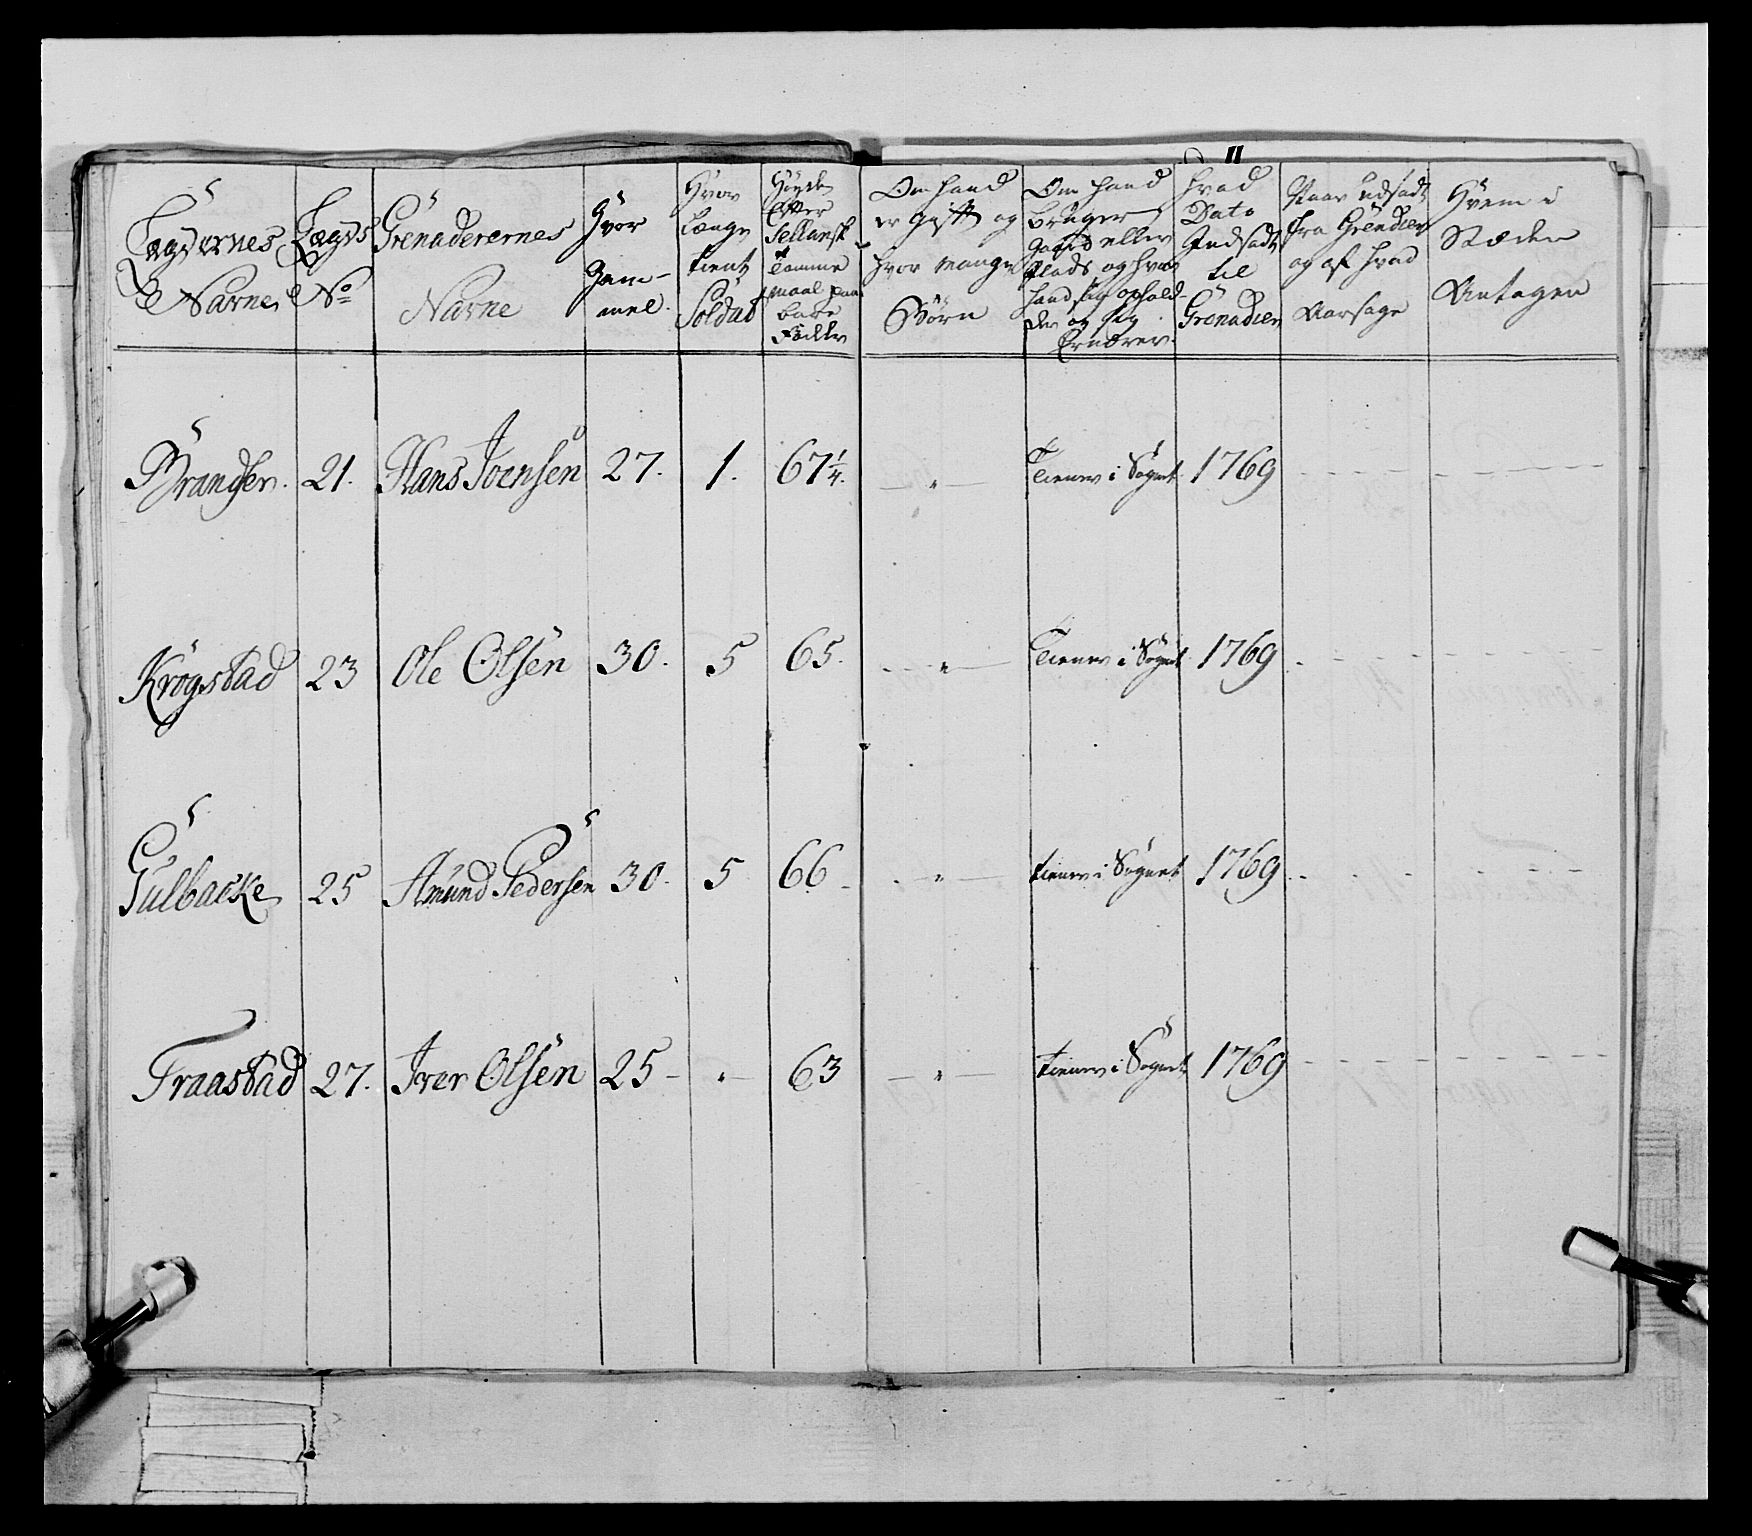 11
Lægdernes
Navne
Lægds
No
Grenaderernes
Navne
Hvor
Gam-
mel.
Hvor
Længe
tient
Soldat
Høyde
Efter
Sellansk
Tomme
maal paa
bare
Fødder
Om hand
er gift og
hvor mange
Børn
Om hand
bruger
gaard eller
Plads og hvor
hand sig ophold-
der og sig
Ernærer.
hvad
Dato
Indsadt
til
Grenadeer
Naar udsadt
fra Grendeer
og af hvad
Aarsage
Hvem i
Stæden
Antagen
Brander. 21. Hans Joensen 27. 1. 67 1/4. — " — Tiener i Sognet 1769
Krogstad 23 Ole Olsen 30. 5 65. — " — Tiener i Sognet 1769
Gulbacke 25 Amund Pedersen 30. 5 66 — " — tiener i Sognet 1769
Fraastad 27. Iver Olsen 25 — " — 63 — " — tiener i Sognet 1769